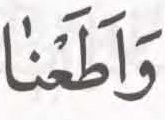 وَاَطَعْنَا